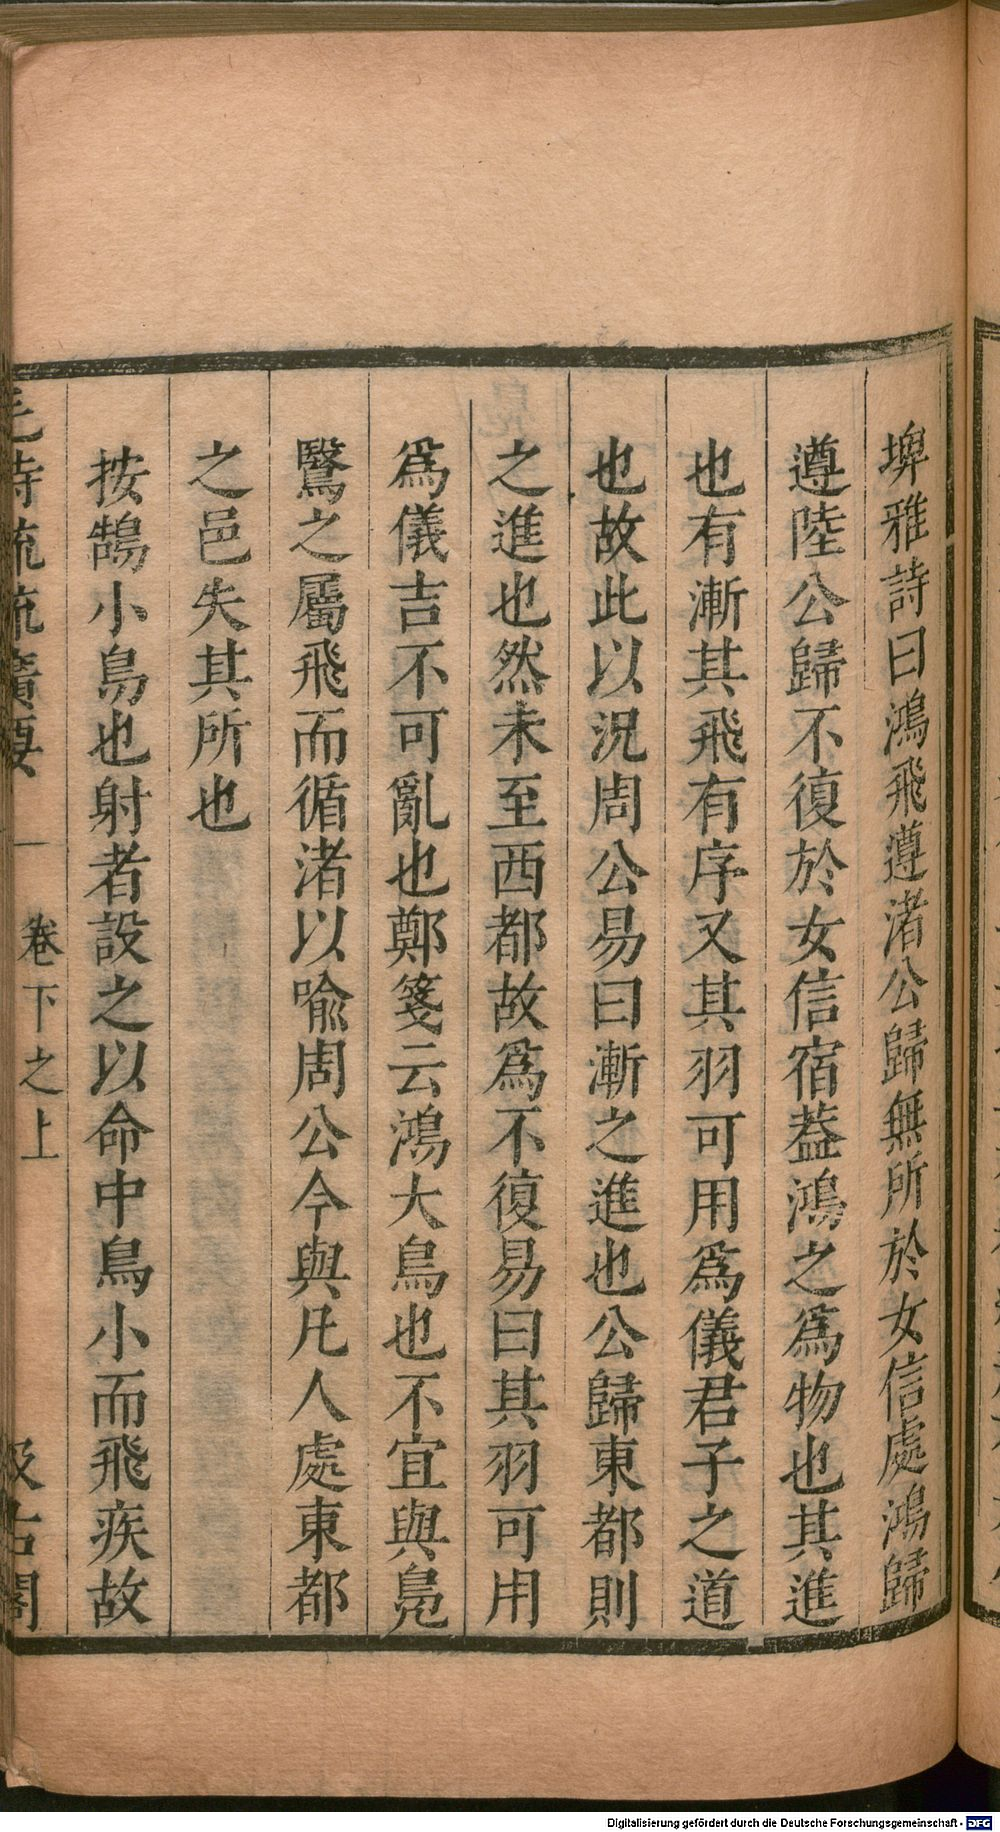 埤雅詩曰鴻飛遵渚公歸無所於女信處鴻歸
遵陸公歸不復於女信宿葢鴻之爲物也其進
也有漸其飛有序又其羽可用爲儀君子之道
也故此以況周公易曰漸之進也公歸東都則
之進也然未至西都故爲不復易曰其羽可用
爲儀吉不可亂也鄭箋云鴻大鳥也不宜與鳧
鷖之屬飛而循渚以喻周公今與凡人處東都
之邑失其所也
按鵠小鳥也射者設之以命中鳥小而飛疾故
毛詩疏疏廣要 卷下之上 汲古閣
Digitalisierung gefördert durch die Deutsche Forschungsgemeinschaft - DFG